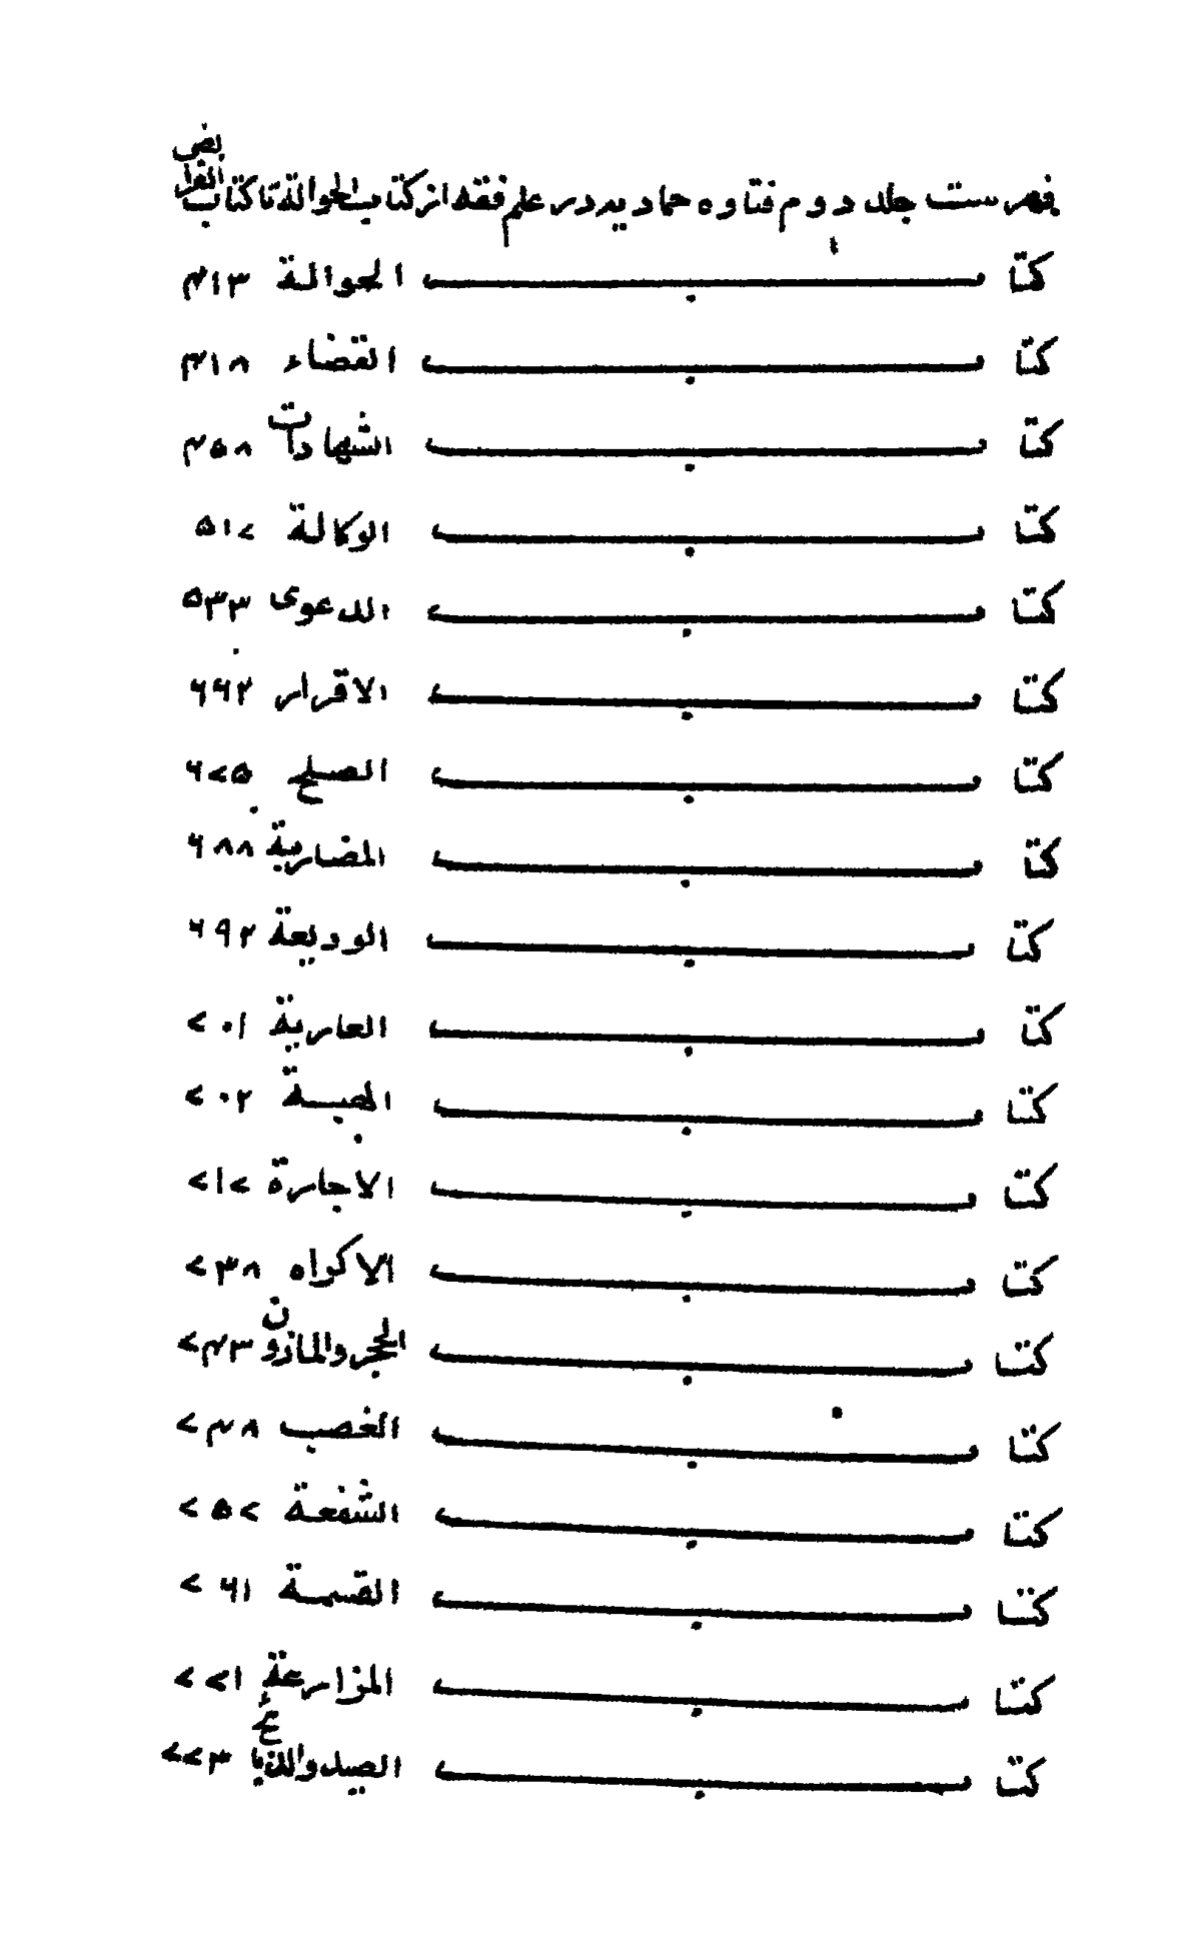 فهرست جلد دوم فتاوه حمادیه در علم فقه از کتاب الحوالة تا کتاب الفرایض
کتاب الحوالة ۴۱۳
کتاب القضاء ۴۱۸
کتاب الشهادات ۴۵۸
کتاب الوکالة ۵۱۷
کتاب الدعوی ۵۳۳
کتاب الاقرار ۶۶۲
کتاب الصلح ۶۷۵
کتاب المضاربة ۶۸۸
کتاب الودیعة ۶۹۲
کتاب العاریة ۷۰۱
کتاب الهبة ۷۰۲
کتاب الاجارة ۷۱۷
کتاب الاکراه ۷۳۸
کتاب الحجر والماذون ۷۴۳
کتاب الغصب ۷۴۸
کتاب الشفعة ۷۵۷
کتاب القسمة ۷۶۱
کتاب المزارعة ۷۷۱
کتاب الصید والذبائح ۷۷۳